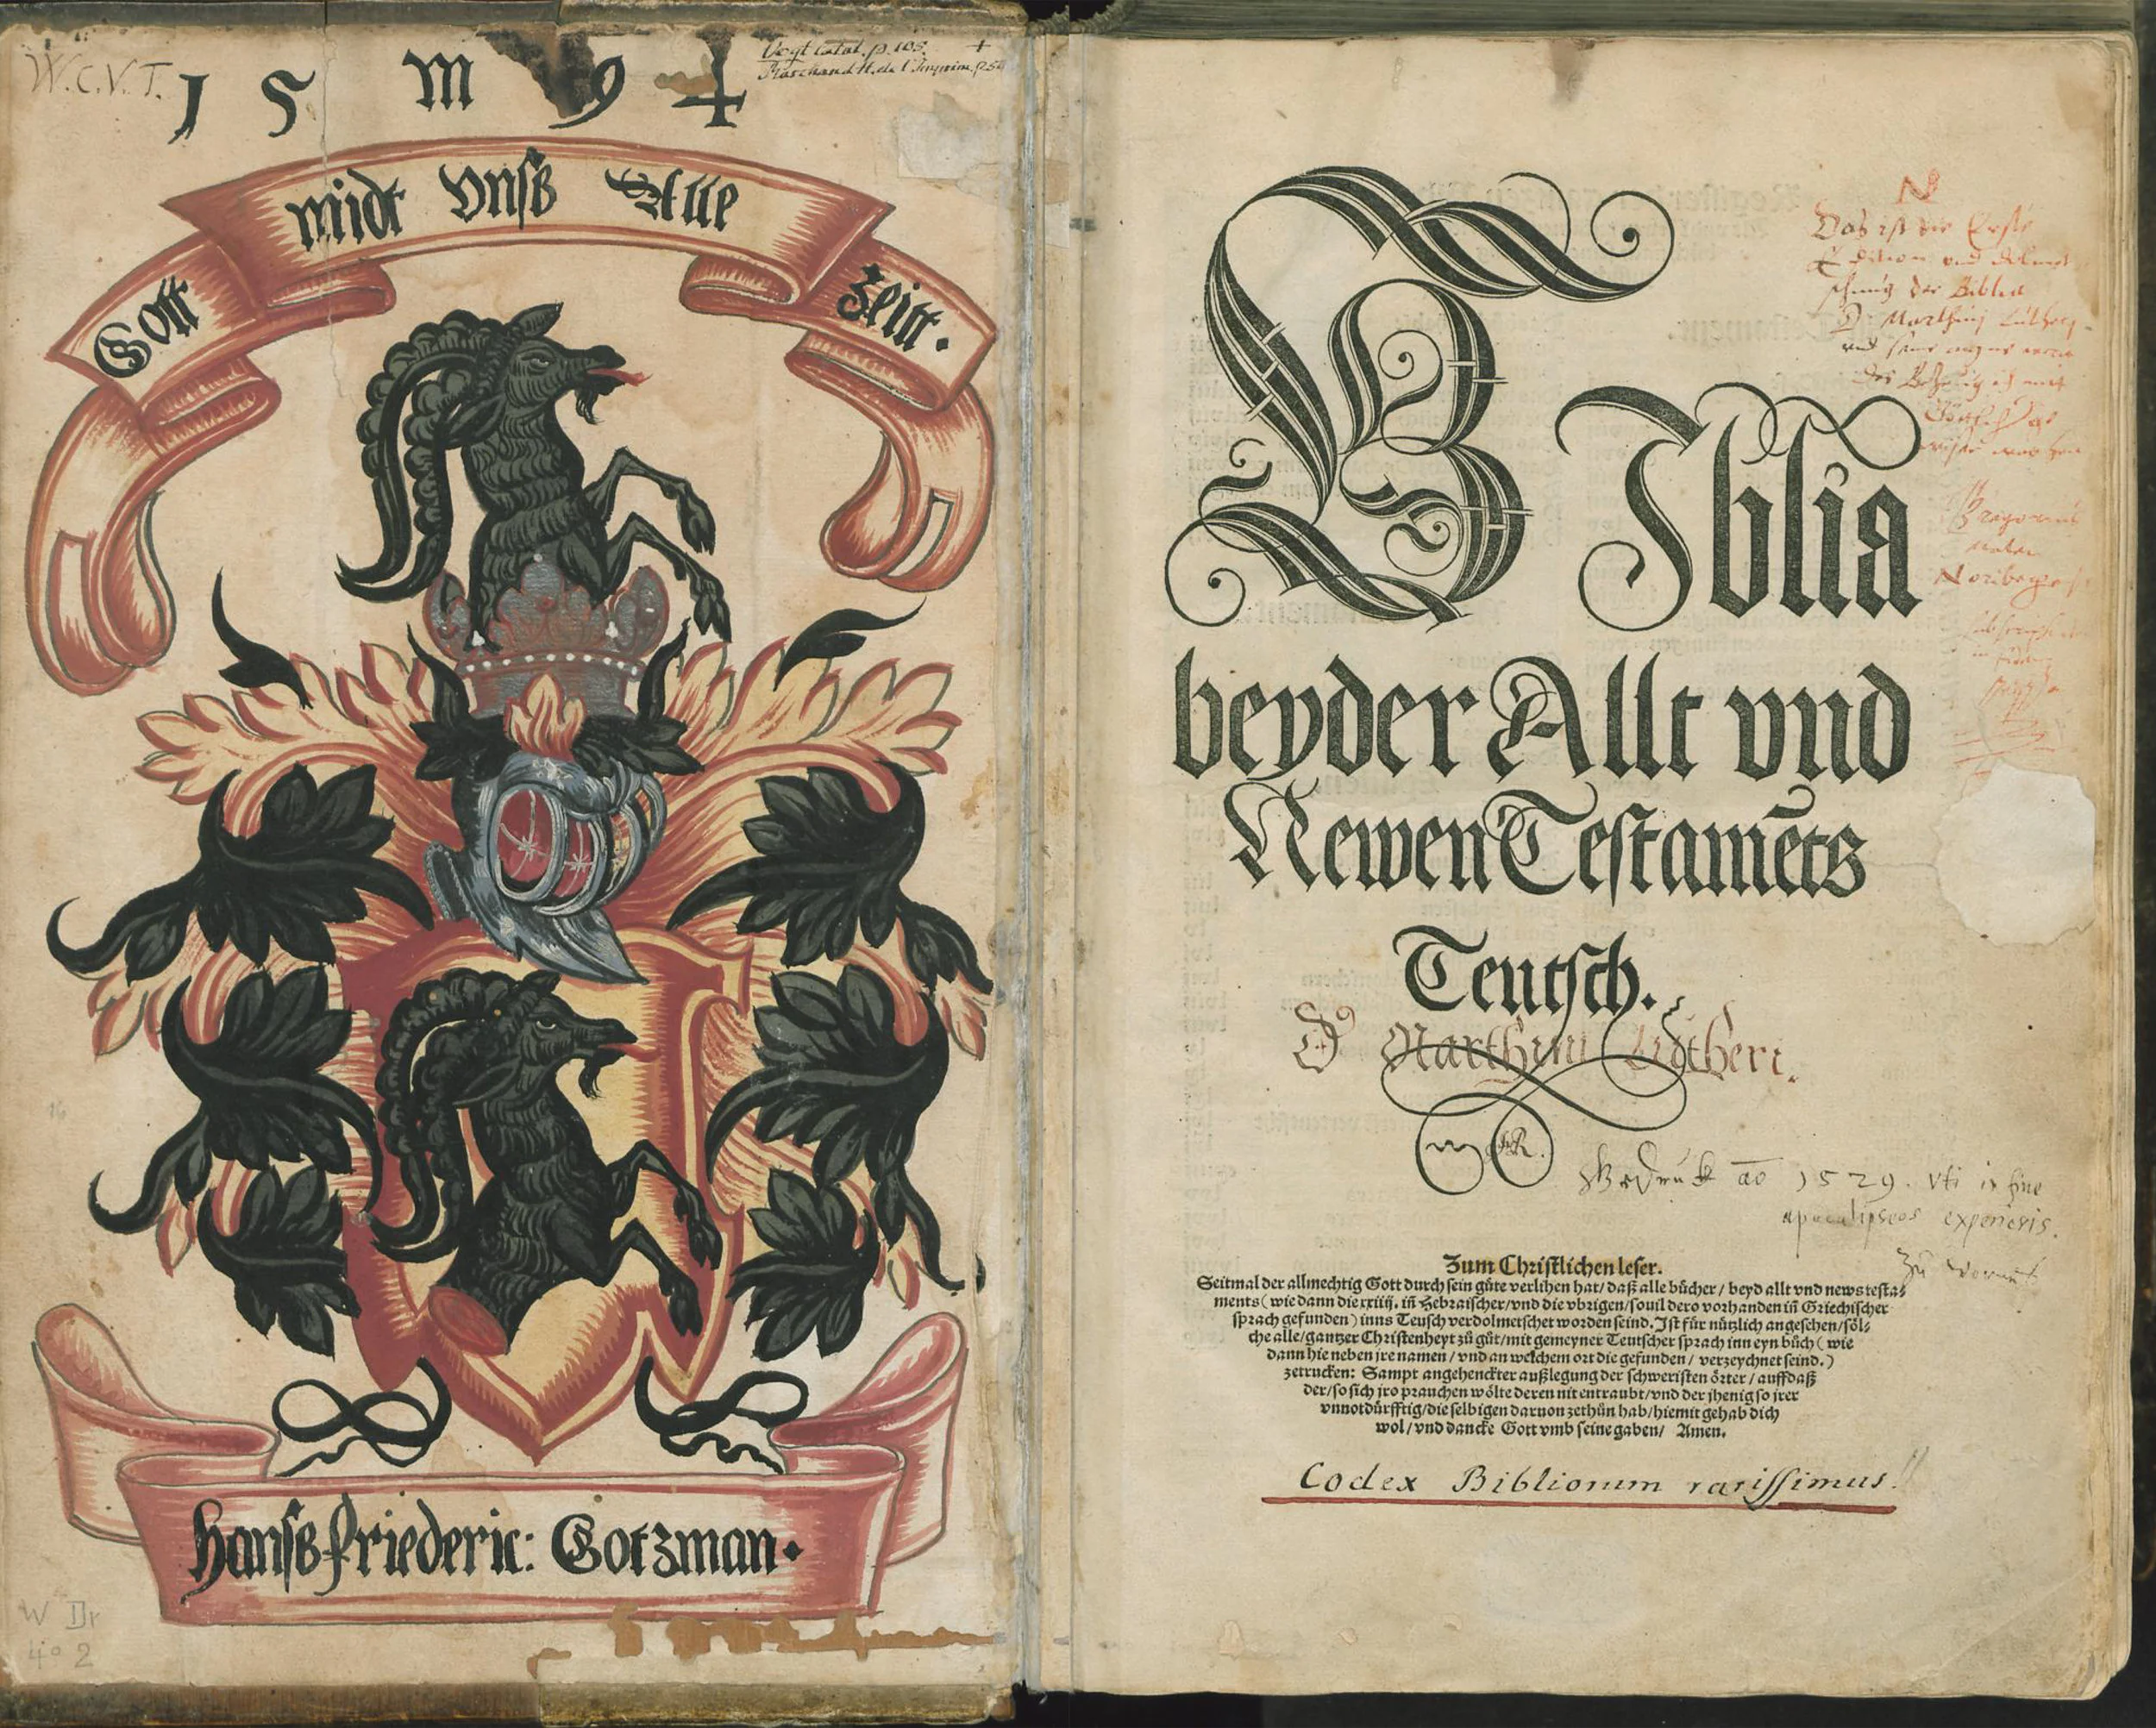 W.C.V.T.
15 m 94
Vogt Catal. p. 105. +
Marchand H. de l'Imprim. p. 54
Gott midt Vnsß Alle Zeitt.
Hansß friederic: Gotzman.
W Dr
4° 2
BIblia
beyder Allt vnd
Newen Testamēts
Teutsch.
D Marthini Lutheri.
Gedruck ao 1529. vti in fine
apocalipseos experieris.
Zum Christlichen leser.
Seitmal der allmechtig Gott durch sein güte verlihen hat/ daß alle bücher/ beyd allt vnd news testa⸗
ments (wie dann die xxiiij. iñ Hebraischer/vnd die vbrigen/souil dero vorhanden iñ Griechischer
sprach gefunden) inns Teusch verdolmetschet worden seind. Ist für nützlich angesehen/söl⸗
che alle/gantzer Christenheyt zů gůt/mit gemeyner Teutscher sprach inn eyn bůch (wie
dann hie neben jre namen/ vnd an welchem ort die gefunden/ verzeychnet seind.)
zetrucken: Sampt angehenckter außlegung der schweristen örter/ auffdaß
der/so sich jro prauchen wölte deren nit entraubt/vnd der jhenig so jrer
vnnotdürfftig/die selbigen daruon zethůn hab/hiemit gehab dich
wol/vnd dancke Gott vmb seine gaben/ Amen.
Codex Bibliorum rarissimus!!
N
Das ist die Erste
Edition vnd
der Biblia
D. Marthinj Lutherj
Noriberge